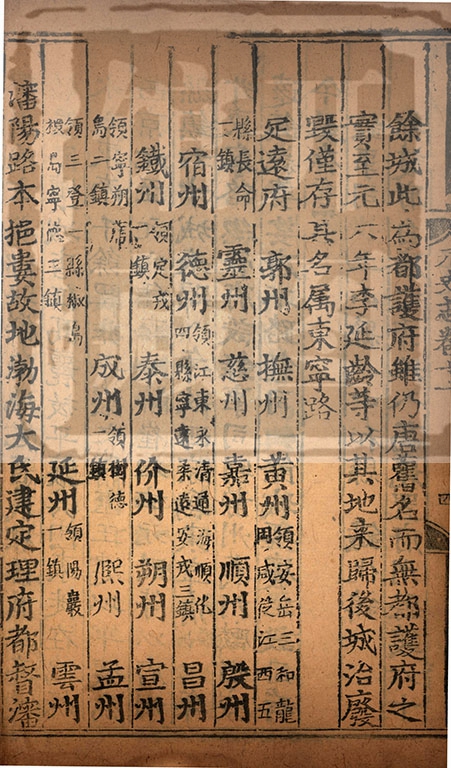 史志卷十一
四
餘城此為都護府雖仍唐舊名而無都護府之
實至元六年李延齡等以其地來歸後城治廢
毀僅存其名属東寧路
㝎遠府 郭州 撫州 黃州領安岳三和龍岡咸從江西五
縣長命一鎮 靈州 慈州 嘉州 順州 殷州
宿州 德州領江東永清通海順化四縣寧遠柔遠安戎三鎮 昌州
鐵州領定戎一鎮 泰州 价州 朔州 宣州
領寧朔席島二鎮 成州領樹德一鎮 熈州 孟州
領三登一縣椒島椵島寧德三鎮 延州領陽巖一鎮 雲州
瀋陽路本挹婁故地渤海大氏建定理府都督瀋